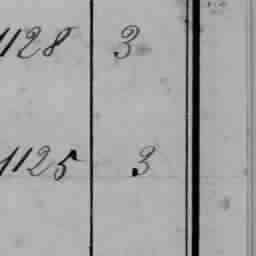 1128 3
1125 3